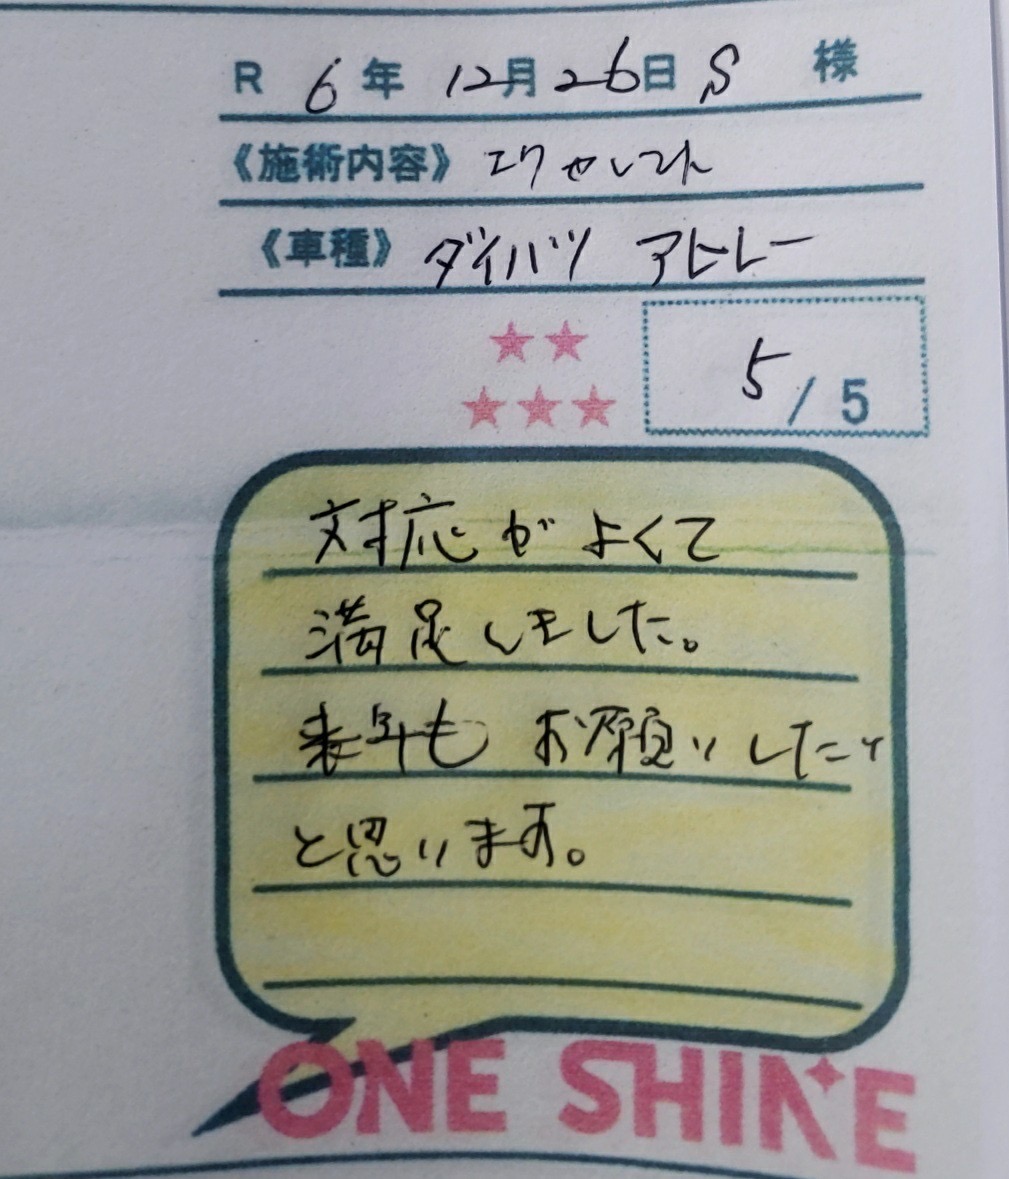 R 6年 12月26日 S 様
《施術内容》 エクセレント
《車種》 ダイハツ アトレー
5/5
対応がよくて
満足しました。
来年もお願いしたい
と思います。
ONE SHINE